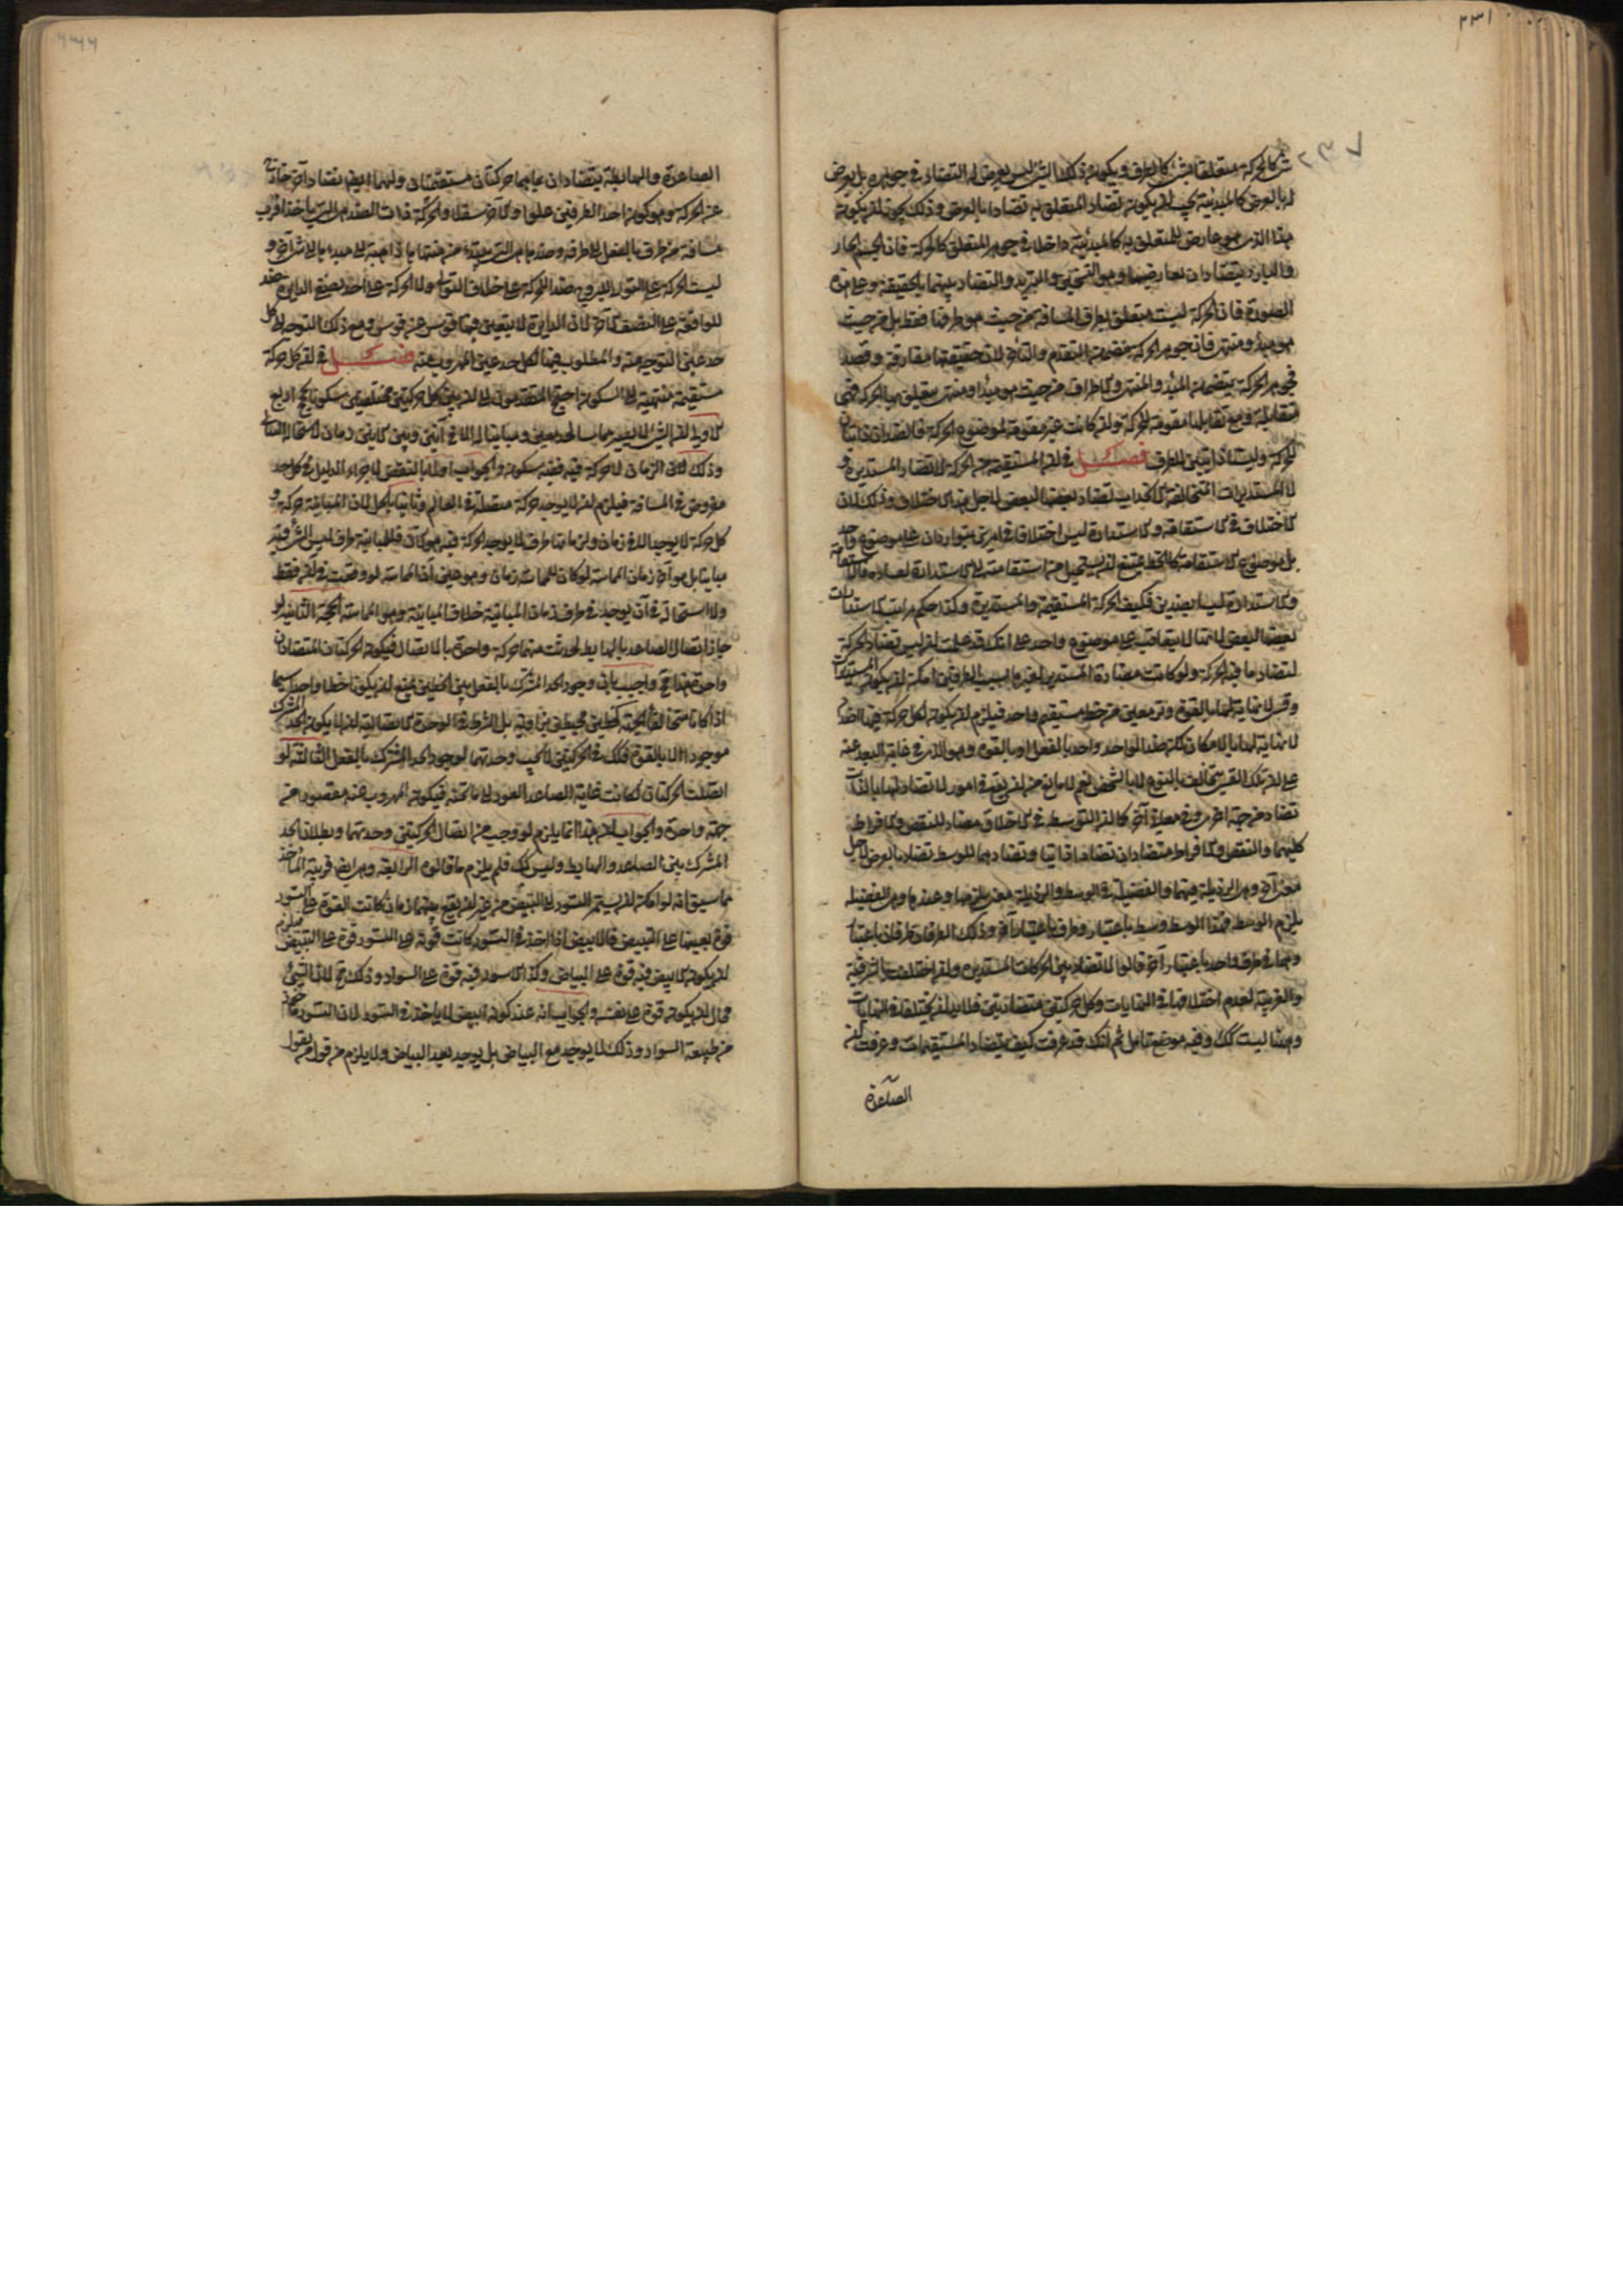 ٢٣١
٢٣٧
كالحركة متعلقا بشئ كالطرف ويكون ذلك الشئ ليس يعرض له التضاد في جوهره بل يعرض
له بالعرض كالمبدئية لم يجب ان يكون تضاد المتعلق به تضادا بالعرض وذلك يجوز ان يكون
هذا الذي هو عارض للمتعلق به كالمبدئية داخلا في جوهر المتعلق كالحركة فان الجسم الحار
والبارد يتضادان بعارضيهما وهو التسخين والتبريد والتضاد بينهما بالحقيقة وعلى هذه
الصورة فان الحركة ليست متعلق بطرف المسافة من حيث هو طرفنا فقط بل من حيث
هو مبدأ ومنتهى فان جوهر الحركة يتضمن التقدم والتأخر لان حقيقتها مفارقة وقصد
فجوهر الحركة يتضمن المبدأ والمنتهى والاطراف من حيث هو مبدأ ومنتهى يتعلق بها الحركة فهى
متقابلة فهى مع تقابلها مقومة للحركة وان كانت غير مقومة لموضوع الحركة فالضدان ذاتيان
للحركة وليسا ذاتيتين للطرف فصل في ان المستقيمة من الحركة لا تضاد المستديرة و
لا المستديرات المتخالفة في التحديب تضاد بعضها لبعض لاجل هذا الاختلاف وذلك لان
الاختلاف في الاستقامة والاستدارة ليس اختلافا في امرين يتواردان على موضوع واحد
بل موضوع الاستقامة كالخط يمتنع ان يستحيل من استقامته الى الاستدارة لصاده فالاستقامة
والاستدارة ليسا بضدين فكيف الحركة المستقيمة والمستديرة وكذا حكم مراتب الاستدارات
بعضها لبعض لامتناع تعاقب على موضوع واحد على انك قد علمت ان ليس تضاد الحركة
لتضاد ما فيه الحركة ولو كانت مضادة المستدير لغيرها بسبب الطرفين امكن ان يكون المستديرات
وقسى لا نهاية لها بالقوة وتر معين من خط مستقيم واحد فيلزم ان يكون لكل حركة فيها اضداد
لا نهاية لها بالامكان لكن ضد الواحد واحد بالفعل او بالقوة وهو الذى في غاية البعد عنه
على ان تلك القسى تتخالف بالنوع لا بالشخص نعم لا مانع من ان يقع في امور لا تضاد لها بالذات
تضاد من جهة اخرى في معان آخر كما ان التوسط في الاخلاق مضاد للنقص والافراط
كليهما والنقص والافراط متضادان تضادا ذاتيا وتضادهما للوسط تضاد بالعرض لاجل
معنى آخر وهى الرذيلة فيهما والفضيلة في الوسط والرذيلة معنى يلزمهما وعندهما وهى الفضيلة
يلزم الوسط فهذا الوسط وسط باعتبار وطرف باعتبار آخر وذلك الطرفان طرفان باعتبار
وهما في طرف واحد باعتبار آخر قالوا لا تضاد بين الحركات المستديرة وان اختلفت بالشرقية
والغربية لعدم اختلافها في النهايات وكل حركتين متضادتين فلا بد ان تختلفا في النهايات
وههنا ليست كك وفيه موضع تأمل ثم انك قد عرفت كيف يتضاد المستقيمات وعرفت ان
الصاعدة
الصاعدة والهابطة يتضادان بما هما حركتان مستقيمتان ولهما ايضا تضاد آخر خارج
عن الحركة وهو كون احد الطرفين علوا والآخر سفلا والحركة ذات الضد هى التى يأخذ اقرب
مسافة من طرف بالفعل الى طرف وضدها هى التى مبتدئ من منتهاها ذاهبة الى مبدءها لا الى شئ آخر و
ليست الحركة على التوالى للبروج ضد الحركة على خلاف التوالى ولا الحركة على احد نصفى الدايرة ضد
للواقعة على النصف الآخر لان الدايرة لا يتعين فيها قوس عن قوس ومع ذلك التوجه الى كل
حد عين التوجه عنه والمطلوب فيها لكل حد عين المهروب عنه فصل في ان كل حركة
مستقيمة منتهية الى السكون احتج المتقدمون الى ان بين كل حركتين مختلفتين سكونا بحجج اربع
الاولى ان الشئ لا يصير مماسا لحد معين ومباينا له الا في آنين وبين كل آنين زمان لاستحالة التتالى
وذلك الآن الزمان لا حركة فيه ففيه سكون والجواب اولا بالنقض لاجراء الدليل في كل حد
مفروض في المسافة فيلزم ان لا يوجد حركة متصلة في العالم وثانيا بالحل لان المباينة حركة و
كل حركة لا يوجد الا في زمان ولزمانها طرف لا يوجد الحركة فيه هو كان فللمباينة طرف ليس الشئ فيه
مباينا بل هو آخر زمان المماسة لو كان للمماسة زمان وهو عين آن المماسة لو وقعت في آن فقط
ولا استحالة في ان يوجد في طرف زمان المباينة خلاف المباينة وهو المماسة الحجة الثانية لو
جاز اتصال الصاعد بالهابط لحدثت منهما حركة واحدة بالاتصال فيكون الحركتان المتضادتان
واحدة هذا مح واجيب بان وجود الحد المشترك بالفعل بين الخطين يمنع ان يكونا خطا واحدا سيما
اذا كانا متخالفى الجهة كخطين محيطين بزاوية بل الشرط في الوحدة الاتصالية ان لا يكون الحد المشترك
موجودا الا بالقوة فكك في الحركتين لا يجب وحدتهما لوجود الحد المشترك بالفعل الثالثة لو
اتصلت الحركتان لكانت غاية الصاعد العود الى ما تحته فيكون المهروب عنه مقصودا من
جهة واحدة والجواب ان هذا انما يلزم لو وجب من اتصال الحركتين وحدتهما وبطلان الحد
المشترك بين الصاعد والهابط وليس كك فلم يلزم ما قالوه الرابعة وهى ايضا قريبة المأخذ
مما سبق انه لو امكن ان يستمر التسود الى التبيض من غير ان يقع بينهما زمان كانت القوة على التسود
قوة بعينها على التبييض فالابيض اذا اخذ في التسود كانت قوته على التسود قوة على التبيض فيلزم
ان يكون الابيض فيه قوة على البياض وكذا الاسود فيه قوة على السواد وذلك مح لان الشئ
محال ان يكون قوة على نفسه والجواب انه عند كونه ابيض لا يأخذ في التسود لان التسود اخذ
من طبيعة السواد وذلك لا يوجد مع البياض بل يوجد بعد البياض ولا يلزم من قول من يقول